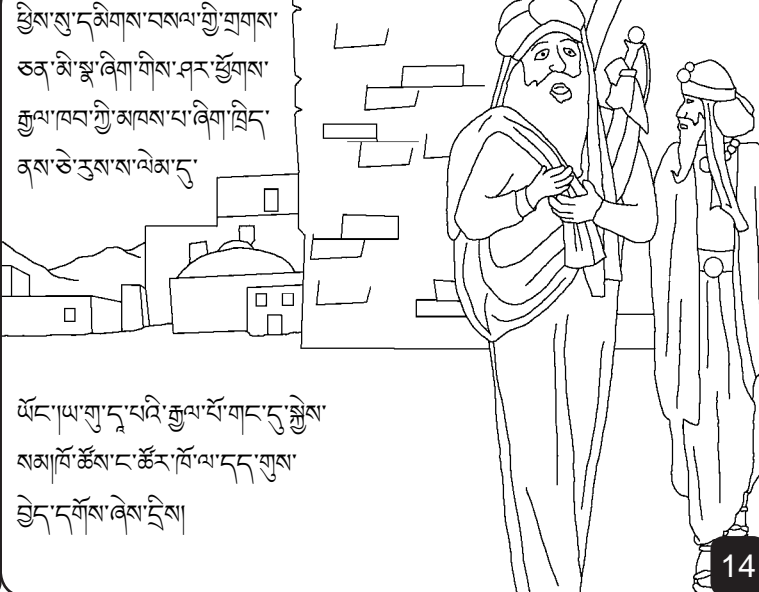 ཕྱིས་སུ་དམིགས་བསལ་གྱི་གྲགས་
ཅན་མི་སྣ་ཞིག་གིས་ཤར་ཕྱོགས་
རྒྱལ་ཁབ་ཀྱི་མཁས་པ་ཞིག་ཁྲིད་
ནས་ཅེ་རུས་ས་ལེམ་དུ་
ཡོང་།ཡ་གུ་དཱ་པའི་རྒྱལ་པོ་གང་དུ་སྐྱེས་
སམ།ཁོ་ཚོས་ང་ཚོར་ཁོ་ལ་དད་གུས་
བྱེད་དགོས་ཞེས་དྲིས།
14